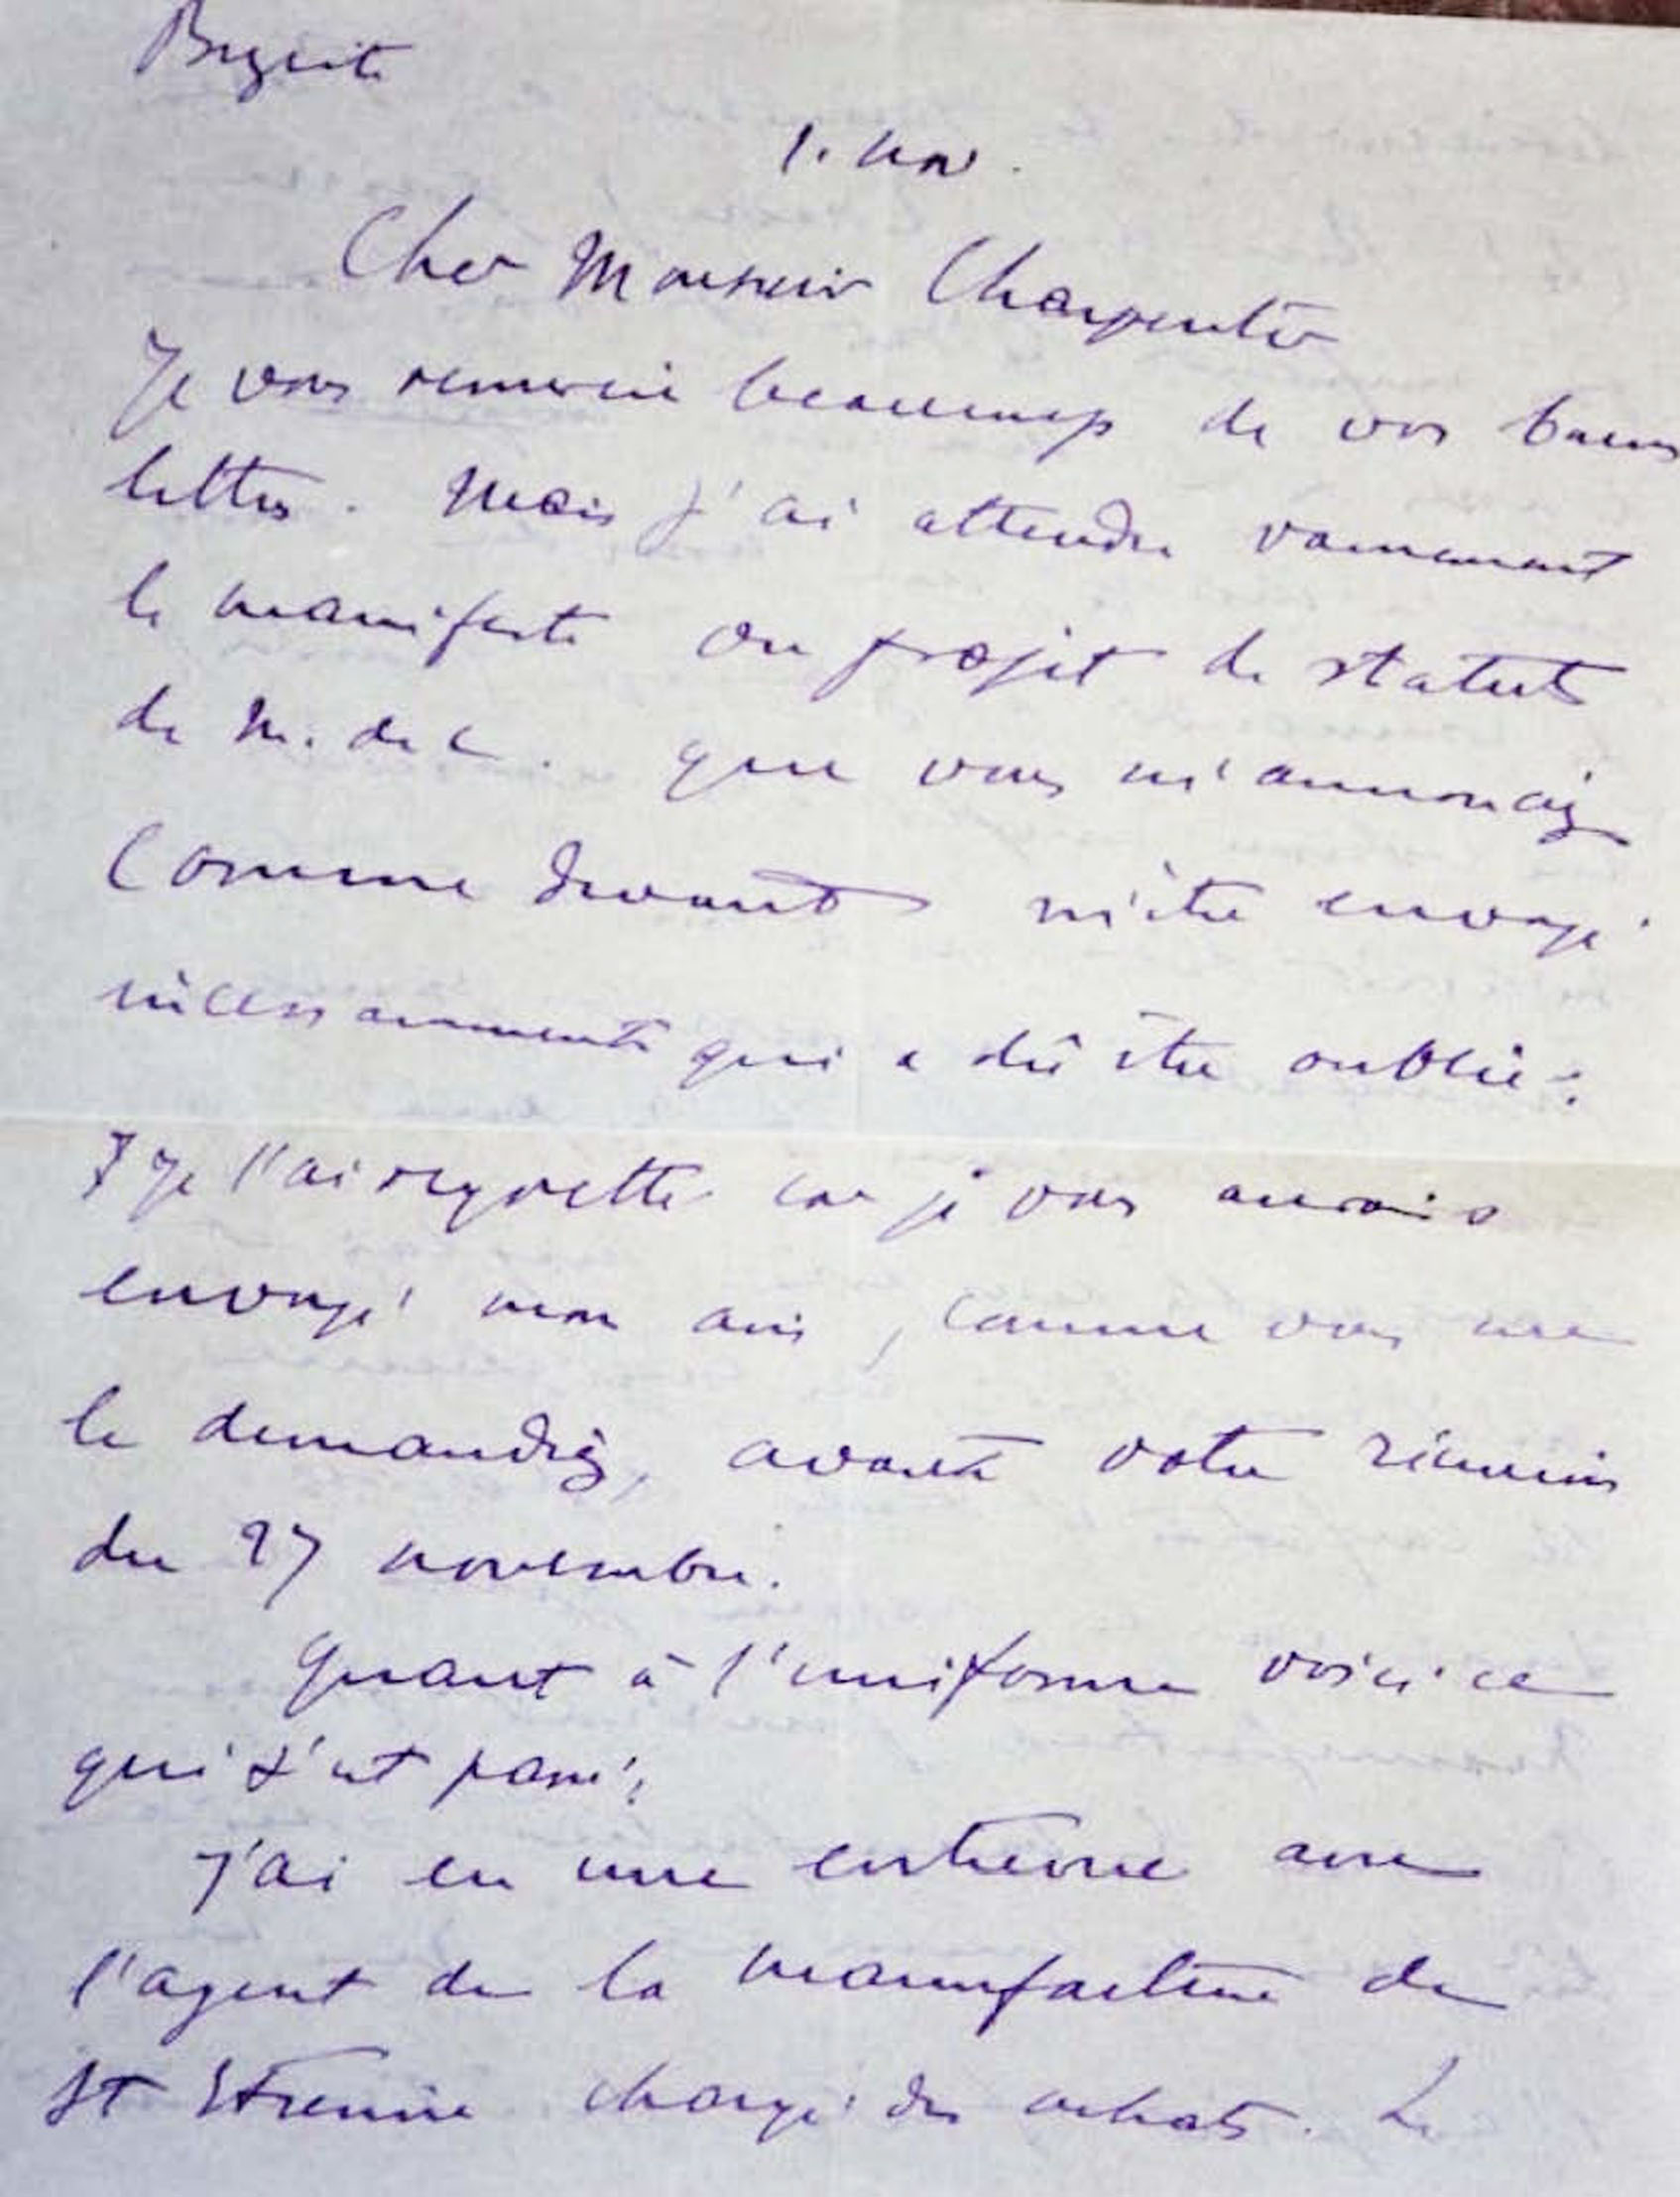 1. nov.
Cher Monsieur Charpentier
Je vous remercie beaucoup de vos bonnes
lettres. Mais j'ai attendu vainement
le manifeste ou projet de statuts
de M. de C. que vous m'annonciez
comme devant m'être envoyé
incessamment et qui a dû être oublié :
Je l'ai regretté car je vous aurais
envoyé mon avis, comme vous me
le demandiez, avant votre réunion
du 27 novembre.
Quant à l'uniforme voici ce
qui s'est passé :
J'ai eu une entrevue avec
l'agent de la manufacture de
St Etienne chargé des achats. Le